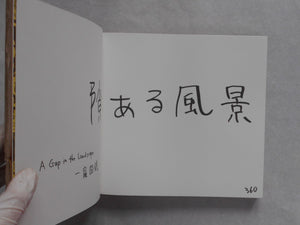 隙ある風景
A Gap in the Landscape
360